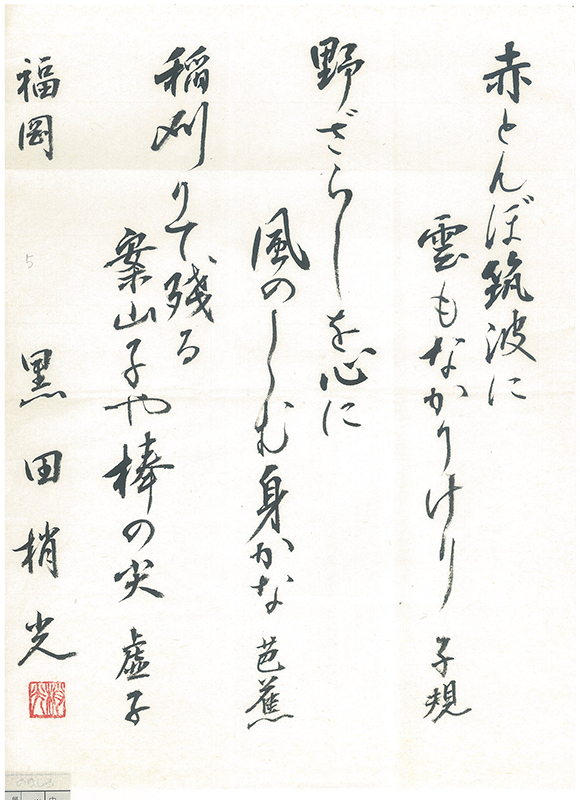 赤とんぼ筑波に
雲もなかりけり 子規
野ざらしを心に
風のしむ身かな 芭蕉
稲刈りて残る
案山子や棒の尖 虚子
福岡 黒田梢光
5